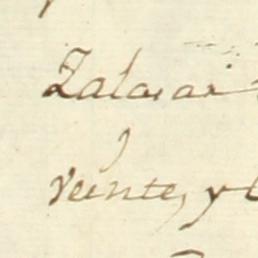 Zalacai
veinte, y